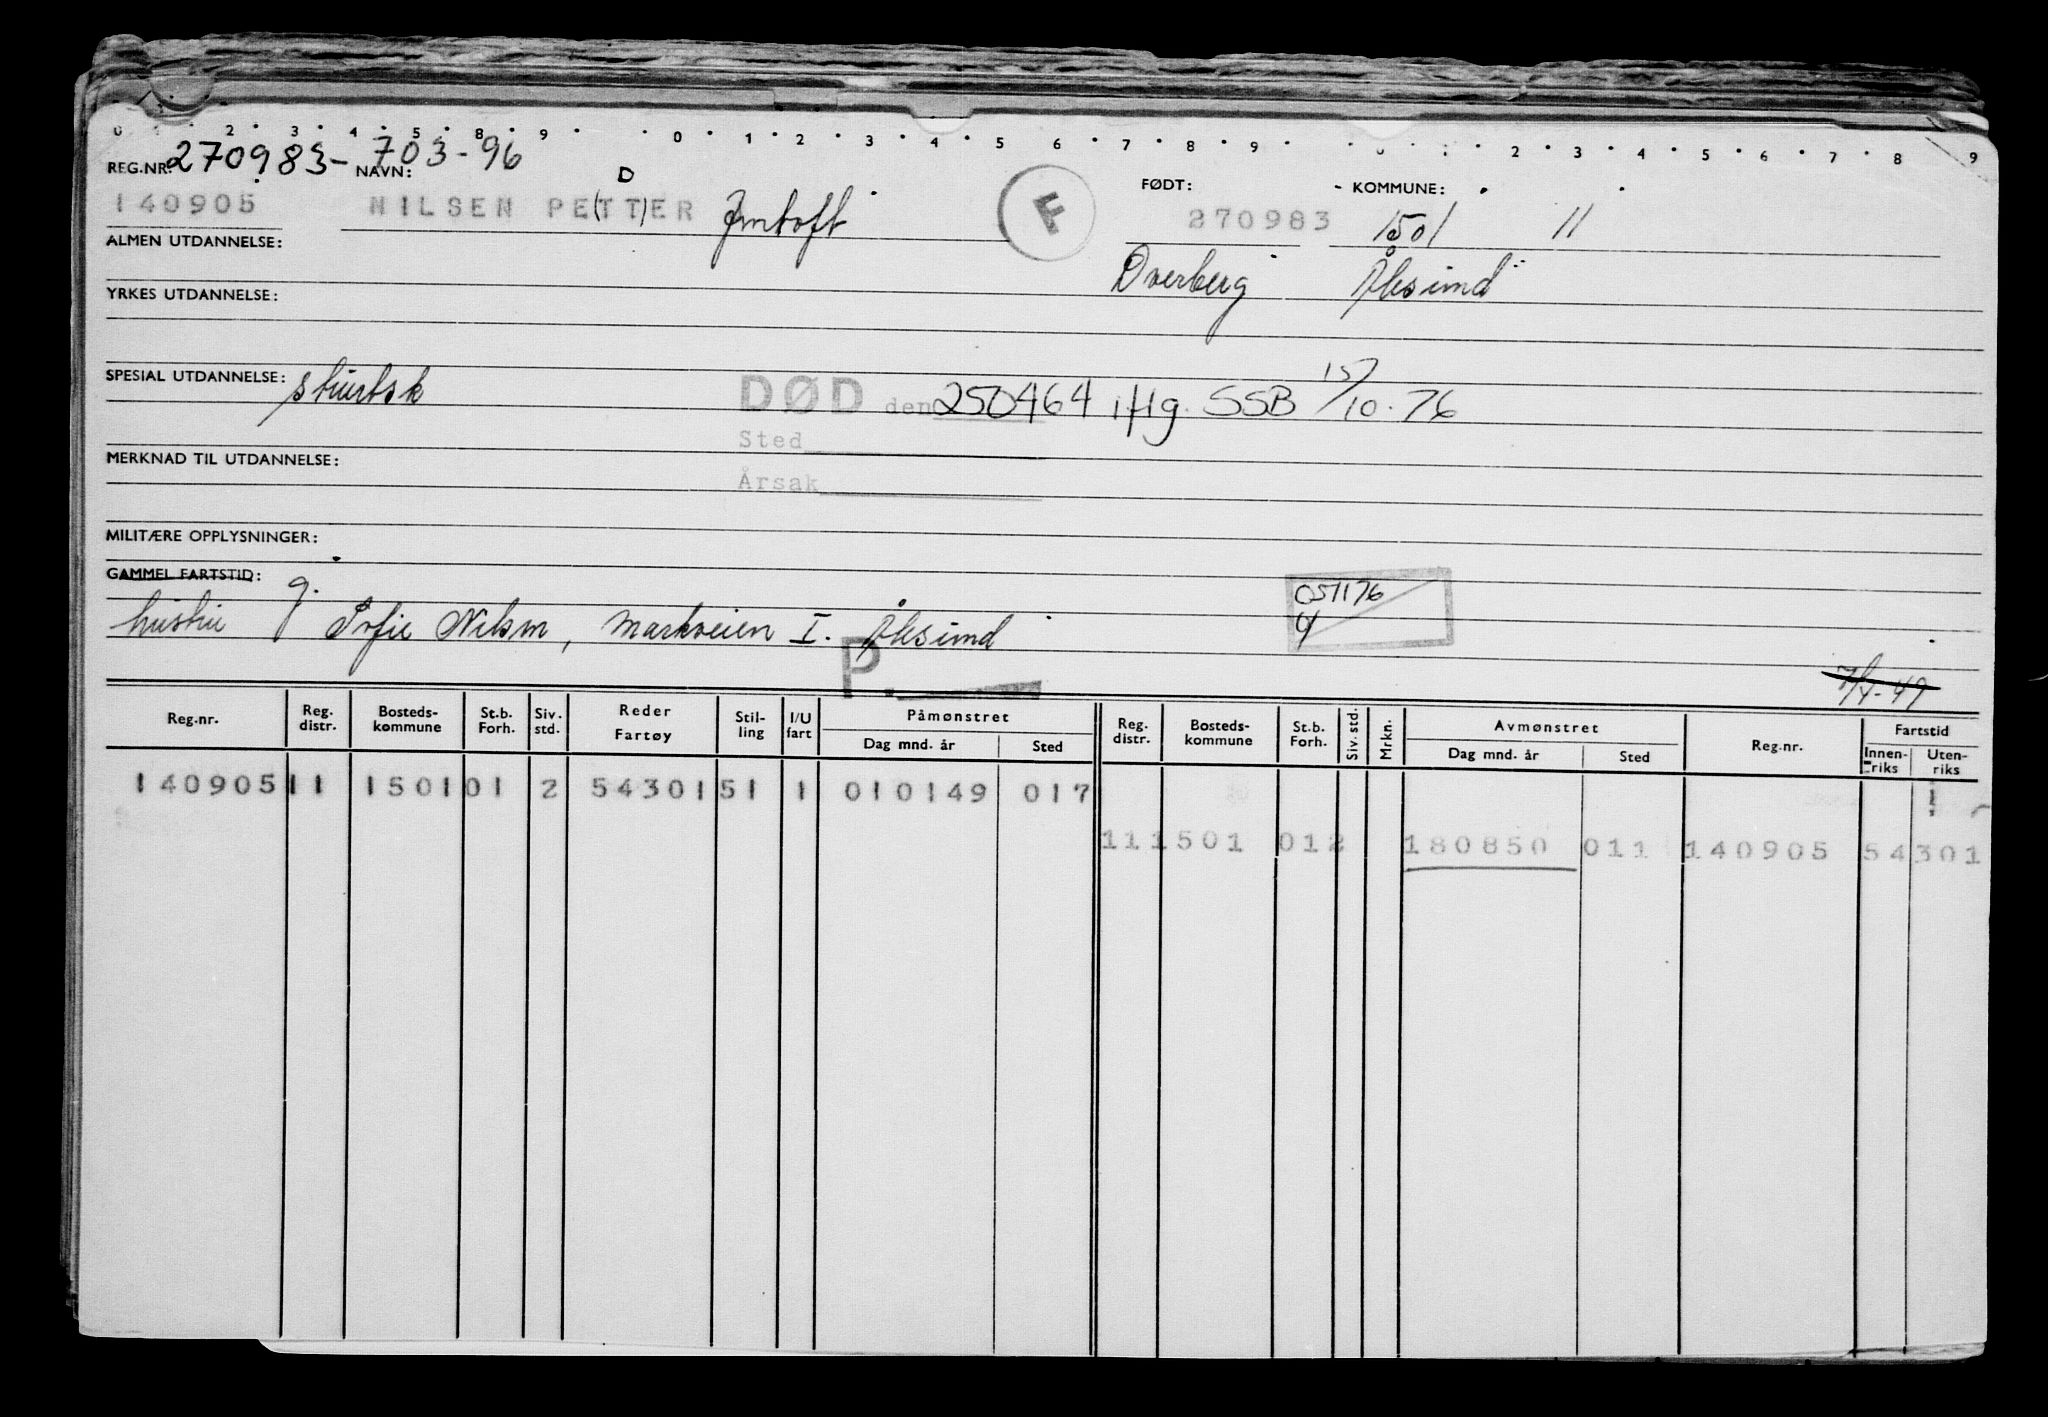 0 1 . 2 . 3 . 4 . 5 . 8 . 9 . . 0 . 1 . 2 . 3 . 4 . 5 . 6 . 7 . 8 . 9 . . 0 . 1 . 2 . 3 . 4 . 5 . 6 . 7 . 8 9
REG.NR. 270983- NAVN: 703-96
D
140905 NILSEN PE(TT)ER Jmtoft F FØDT: 270983 KOMMUNE: 1501 11
ALMEN UTDANNELSE:
Overberg Ålesund
YRKES UTDANNELSE:
SPESIAL UTDANNELSE: stuertsk
DØD den 250464 iflg. SSB 15/10.76
Sted
MERKNAD TIL UTDANNELSE:
Årsak
MILITÆRE OPPLYSNINGER:
GAMMEL FARTSTID: g.
051176
4
hustru Sofie Nilsen, Markveien I. Ålesund
P.
7/4-49
Reg.nr. Reg. distr. Bosteds-kommune St.b. Forh. Siv. std. Reder Fartøy Stil-ling I/U fart Påmønstret Dag mnd. år Sted Reg. distr. Bosteds-kommune St.b. Forh. Siv. std. Mrkn. Avmønstret Dag mnd. år Sted Reg.nr. Fartstid Innen-riks Uten-riks
140905 11 1501 01 2 54301 51 1 010149 017
11 1501 01 2 180850 011 140905 54301